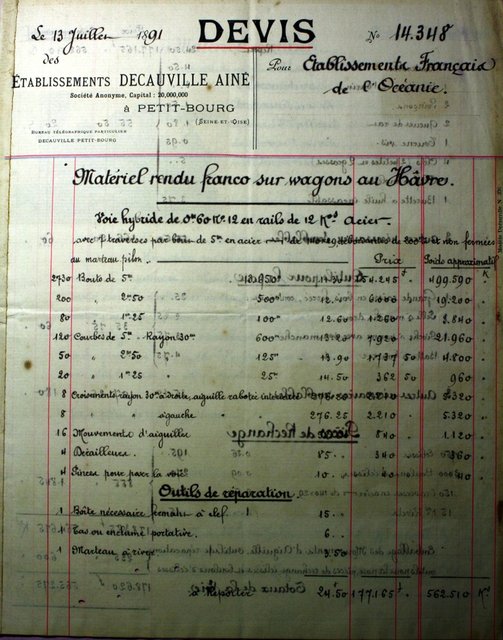 Le 13 Juillet 1891 DEVIS No 14.348
des
ÉTABLISSEMENTS DECAUVILLE AINÉ
Société Anonyme, Capital: 20,000,000
à PETIT-BOURG
(SEINE-ET-OISE)
BUREAU TÉLÉGRAPHIQUE PARTICULIER
DECAUVILLE PETIT-BOURG
Pour Etablissements Français
de l'Océanie.
Matériel rendu franco sur wagons au Hâvre.
Voie hybride de 0m60 No 12 en rails de 12 Ks Acier.
avec traverses par bouts de 5m en acier de non fermées
au marteau pilon. Prix Poids approximatif
2730 Bouts de 5m 154.245 f 499.590 K
200 " 2m50 500m 12. 6.000 19.200
80 " 1m25 100m 12.60 1.260 3.840
120 Courbes de 5m Rayon 30m 600m 7.920 21.960
50 " 2m50 125m 13.90 1.737 50 4.800
20 " 1m25 25m 14.50 362 50 960
8 Croisements rayon 30m à droite, aiguille rabotée 5.320
8 " " à gauche " " 276.25 2.210 5.320
16 Mouvements d'aiguilles 840 1.120
4 Dérailleurs 85 .. 340
4 Pinces pour poser la voie 10 ..
Outils de réparation
1 Boîte nécessaire à clef 15 ..
1 Tas ou enclume portative. 6 ..
1 Marteau à river 3.50
à Reporter 24.50 177.165 f 562.510 Ks